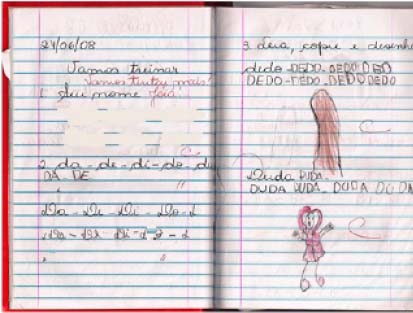 24/06/08
Vamos treinar
Vamos tentar mais?
1. Seu nome
2. da - de - di - do - du
DA - DE
Da - De - Di - Do - D
Da - De Di - D
3. Leia, copie e desenhe
dedo - DEDO - DEDO DED
DEDO - DEDO - DEDO DEDO
C
Duda DUDA -
DUDA DUDA - DUDA DUDA
C